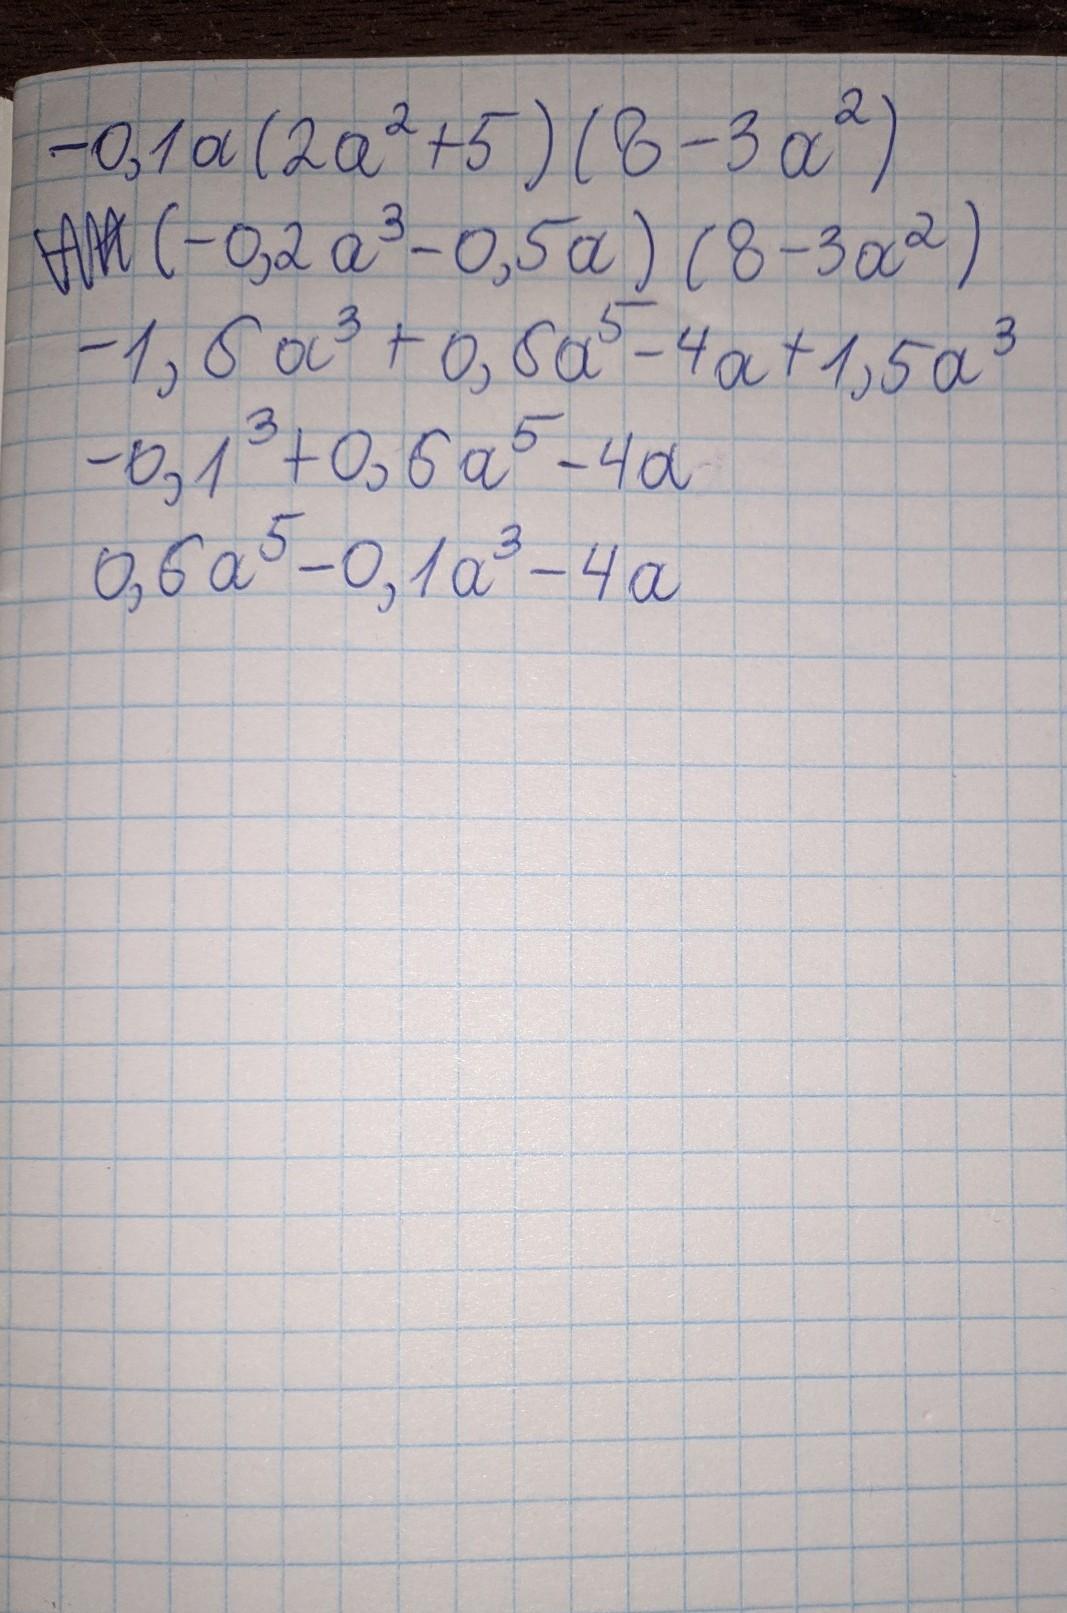 -0,1a(2a²+5)(8-3a²)
(-0,2a³-0,5a)(8-3a²)
-1,6a³+0,6a⁵-4a+1,5a³
-0,1³+0,6a⁵-4a
0,6a⁵-0,1a³-4a